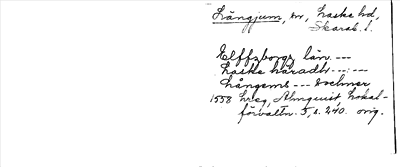 Långjum, sn, Laske hd,
Skarab. l.
Elffzborgz län ---
Laske häradtt ---:---
Långems --- sochner
1558 hreg, Almquist, Lokal-
förvaltn. 5, s. 240. orig.